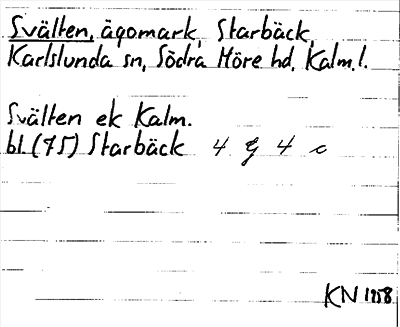 Svälten, ägomark, Starbäck,
Karlslunda sn, Södra Möre hd, Kalm. l.
Svälten ek Kalm.
bl. (75) Starbäck 4 g 4 c
KN 1958